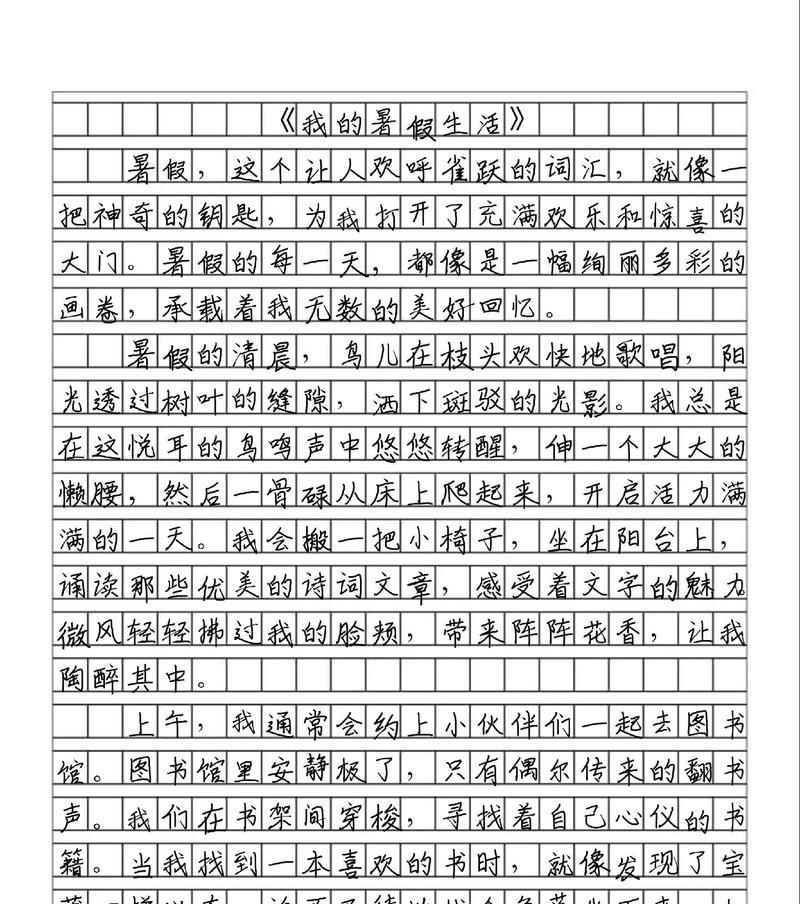 《我的暑假生活》
暑假，这个让人欢呼雀跃的词汇，就像一
把神奇的钥匙，为我打开了充满欢乐和惊喜的
大门。暑假的每一天，都像是一幅绚丽多彩的
画卷，承载着我无数的美好回忆。
暑假的清晨，鸟儿在枝头欢快地歌唱，阳
光透过树叶的缝隙，洒下斑驳的光影。我总是
在这悦耳的鸟鸣声中悠悠转醒，伸一个大大的
懒腰，然后一骨碌从床上爬起来，开启活力满
满的一天。我会搬一把小椅子，坐在阳台上，
诵读那些优美的诗词文章，感受着文字的魅力
微风轻轻拂过我的脸颊，带来阵阵花香，让我
陶醉其中。
上午，我通常会约上小伙伴们一起去图书
馆。图书馆里安静极了，只有偶尔传来的翻书
声。我们在书架间穿梭，寻找着自己心仪的书
籍。当我找到一本喜欢的书时，就像发现了宝